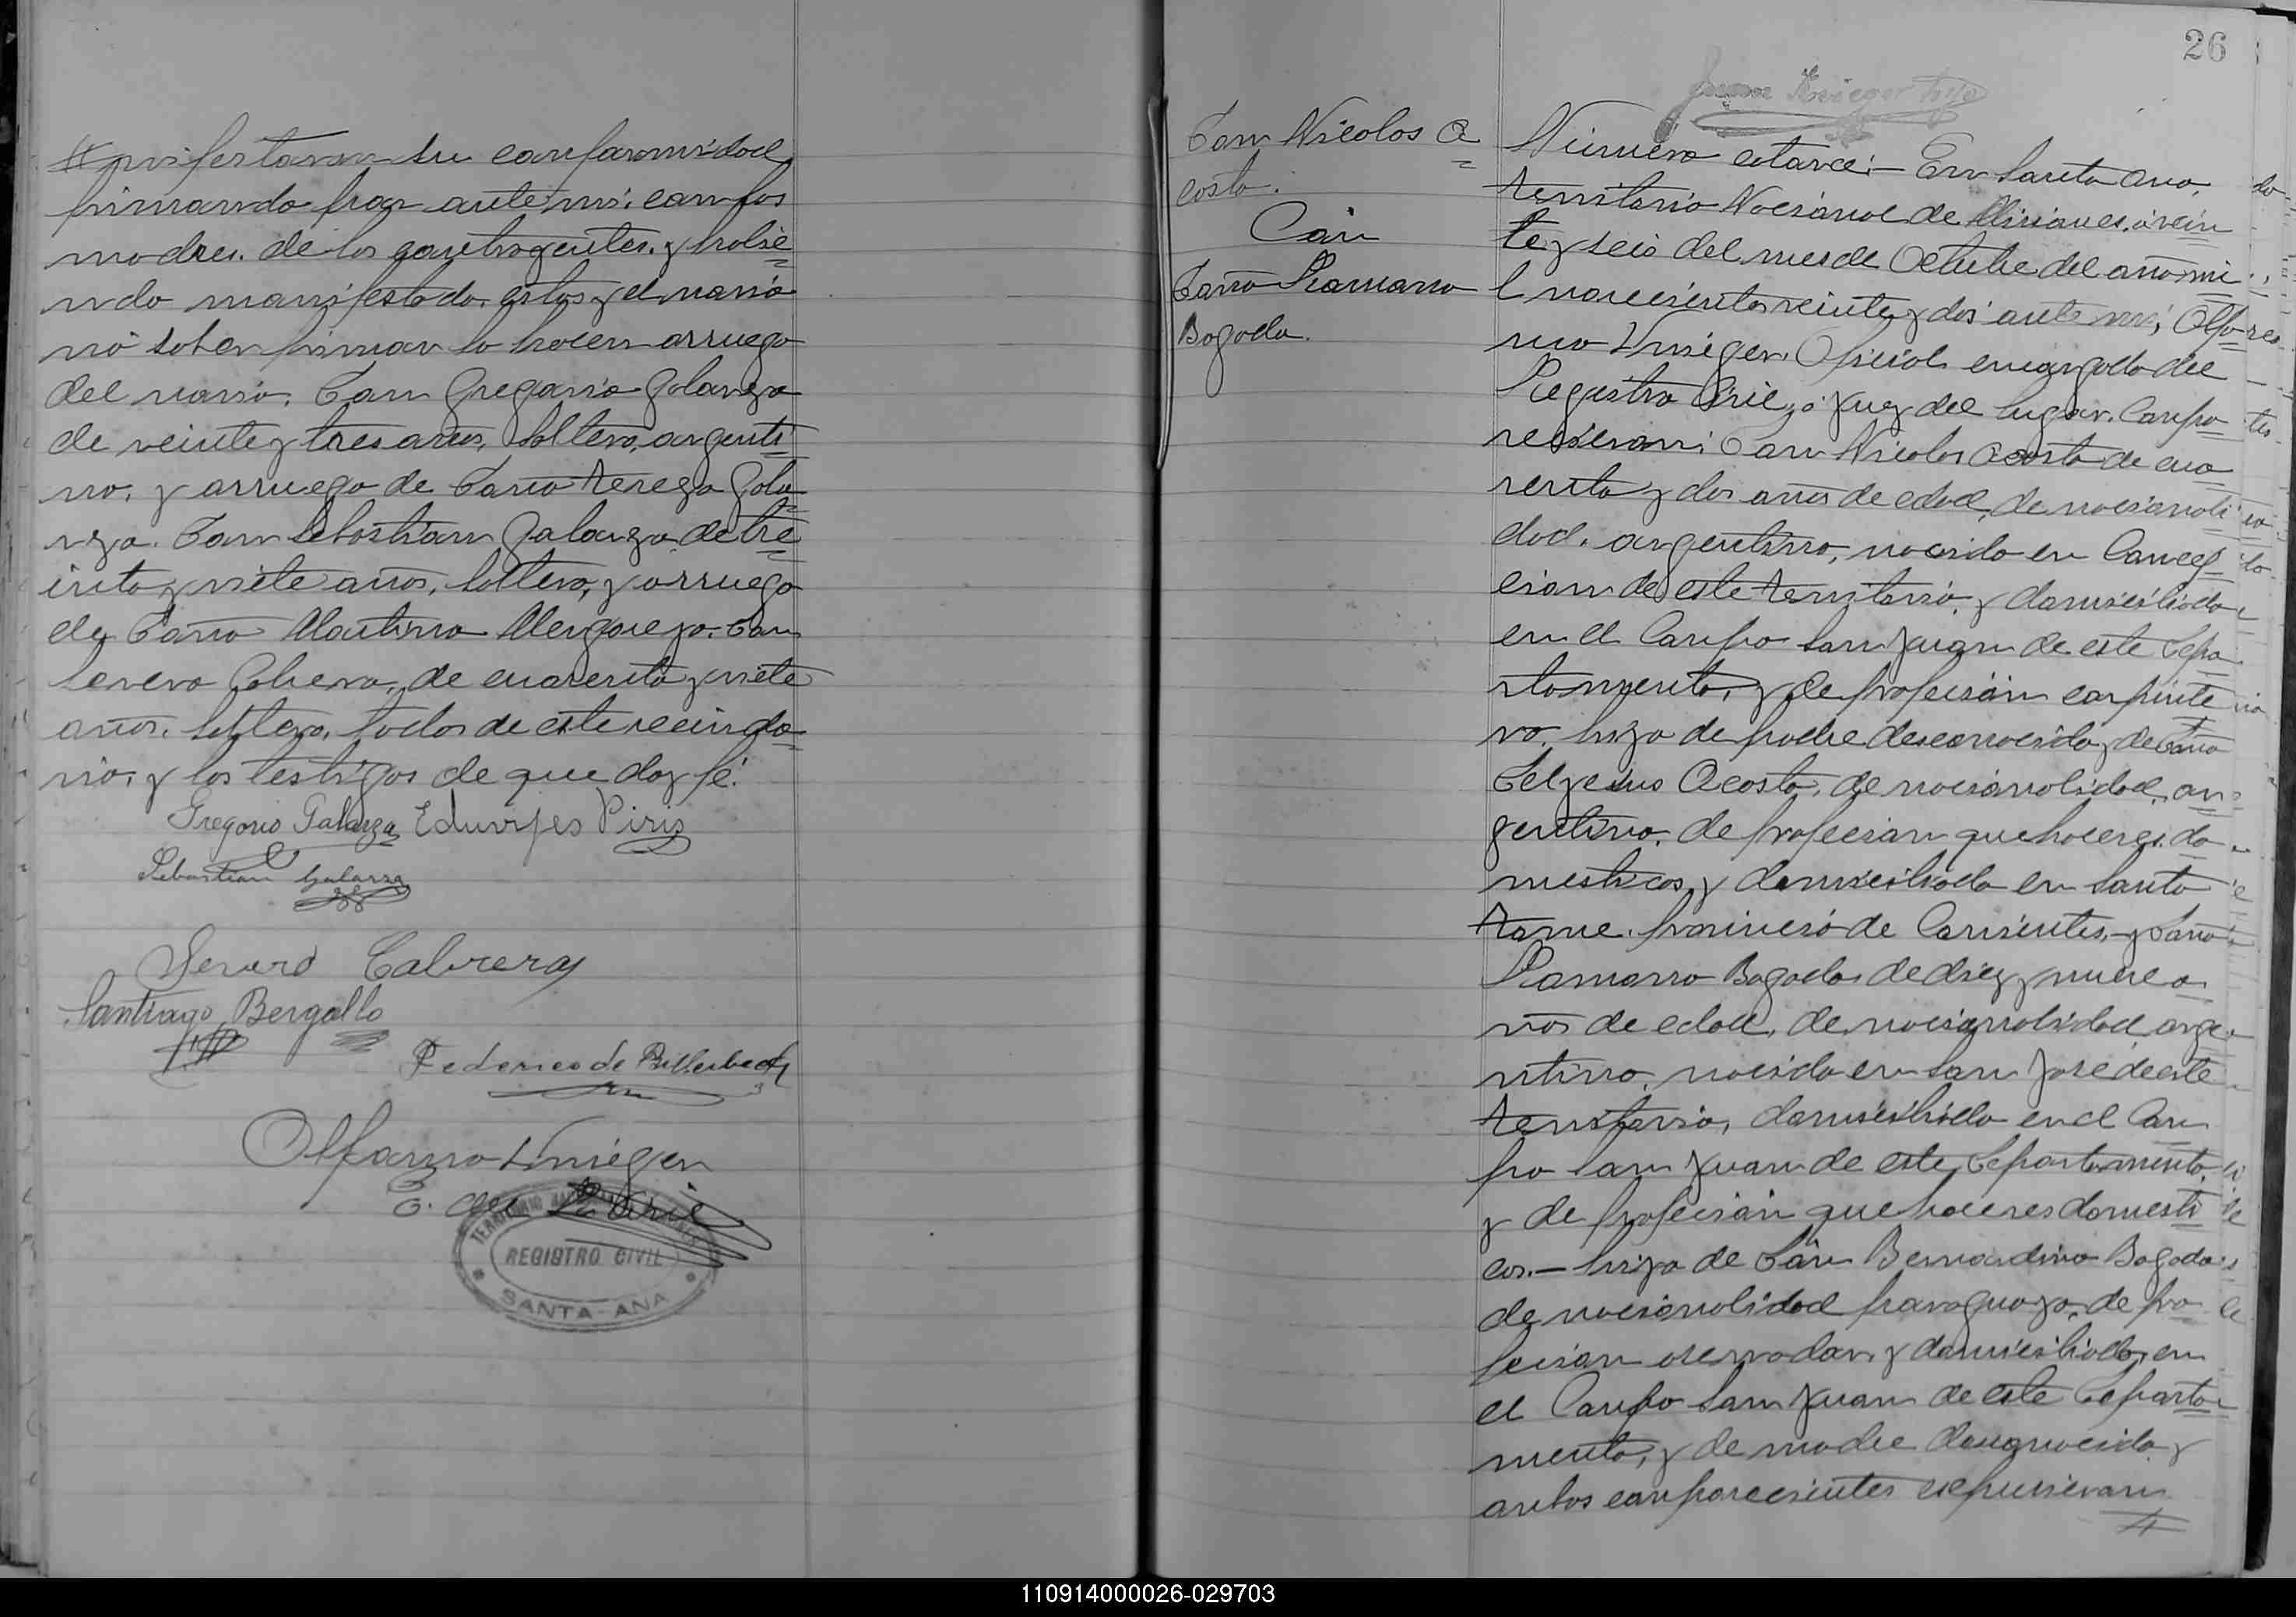 nifestaron su conformidad
firmando por ante mi, con los
madres. de los contrayentes. y habie
ndo manifestado, estos y el novio
nó saber firmar lo hacen arruego
del novio. Don Gregorio Galarza
de veinte y tres años, soltero, argenti
no, y arruego de Doña Tereza Gala
rza. Don Sebastian Galarza de tre
inta y siete años, soltero, y arruego
de Doña Martina
Severo Cabrera, de cuarenta y siete
años. soltero, todos de este vecinda
rio, y los testigos de que doy fé.
Gregorio Galarza Eduvijes Piris
Sebastian Galarza
Severo Cabrera
Santiago Bergallo
Federico de
E. del R. Civil
TERRITORIO NACIONAL DE MISIONES
REGISTRO CIVIL
SANTA-ANA
26
Don Nicolas A
costa.
Con
Doña Ramona
Bogado.
Número catorce:— En Santa Ana,
territorio Nacional de Misiones, á vein
te y seis del mes de Octubre del año mi
l novecientos veinte y dos ante mi, Alfo
nso Krieger, Oficial encargado del
Registro Civil, ó Juez del lugar. Compa
recieron: Don Nicolas Acosta de cua
renta y dos años de edad, de nacionali
dad. argentino, nacido en Concep
cion de este territorio, y domiciliado
en el Campo San Juan de este Depa
rtamento, y de profesión carpinte
ro. hijo de padre desconocido, y de Doña
Acosta, de nacionalidad, ar
gentina. de profecion quehaceres. do
mesticos, y domiciliada en Santo
tome. provincia de Corrientes,- y Doña
Ramona Bogado, de diez y nueve a
ños de edad, de nacionalidad, arge
ntina. nacida en San José de este
territorio, domiciliada en el Cam
po San Juan de este Departamento,
y de profecion quehaceres domesti
cos.— hija de Don Bernardino Bogado
de nacionalidad paraguayo, de pro
fecion, y domiciliado, en
el Campo San Juan de este Departa
mento, y de madre desconocida y
ambos comparecientes expusieron
110914000026-029703